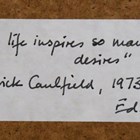 life inspires so man
desires"
ick Caulfield, 1973
Ed